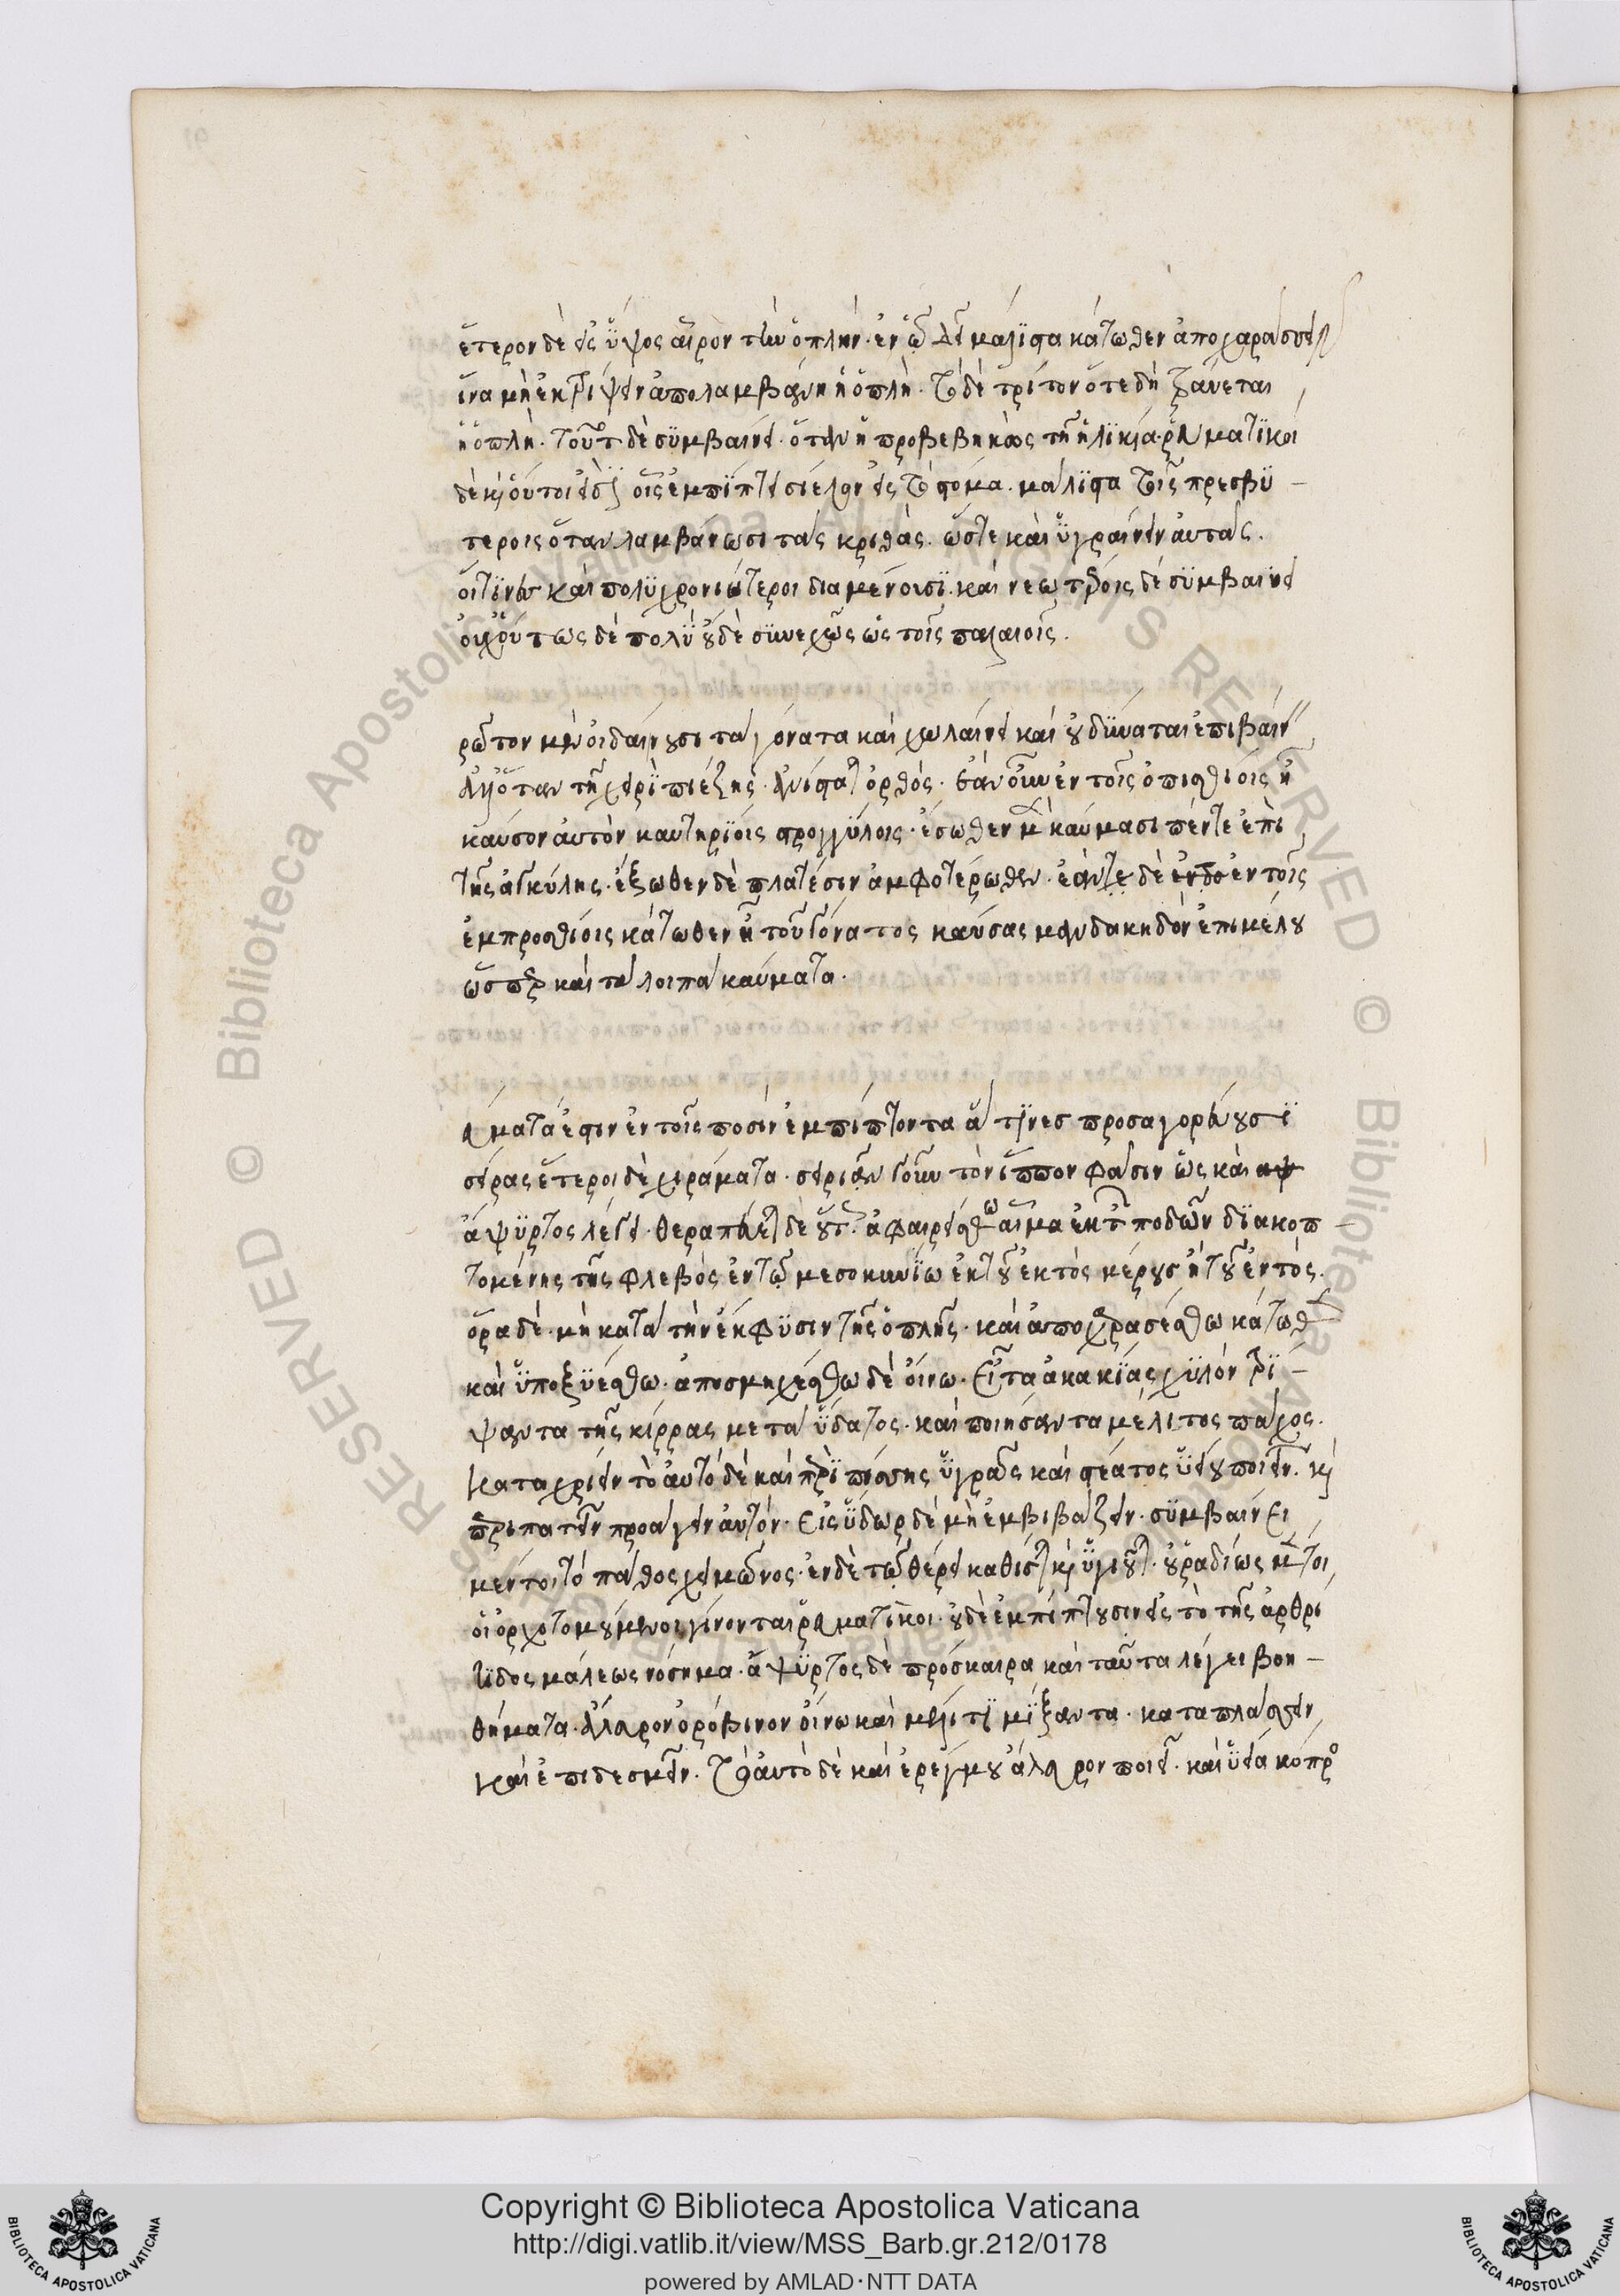 ἕτερον δὲ εἰς ὕψος αἶρον τὴν ὁπλήν. ἐν ᾧ δεῖ μάλιστα κάτωθεν ἀποχαράσσειν
ἵνα μὴ ἐκτρίψειν ἀπολαμβάνη ἡ ὁπλὴ. τὸ δὲ τρίτον ὅτε δὴ ξαίνεται
ἡ ὁπλὴ. τοῦτο δὲ συμβαίνει. ὅταν ᾖ προβεβηκὼς τῆ ἡλικία. ῥευματικοὶ
δὲ καὶ οὗτοι εἰσὶ οἷς ἐμπίπτει σίελον εἰς τὸ στόμα. μάλιστα τοῖς πρεσβυ-
τέροις ὅταν λαμβάνωσι τὰς κριθὰς. ὥστε καὶ ὑγραίνειν αὐτὰς.
οἵτινες καὶ πολυχρονιώτεροι διαμένουσι. καὶ νεωτέροις δὲ συμβαίνει
οὐχ οὕτως δὲ πολὺ οὐδὲ συνεχῶς ὡς τοῖς παλαιοῖς.
ρῶτον μὲν οἰδαίνουσι τὰ γόνατα καὶ χωλαίνει καὶ οὐ δύναται ἐπιβαίνειν
ἀλλ' ὅταν τῆ χειρὶ πιέζης. ἀνίσταται ὀρθός. ἐὰν οὖν ἐν τοῖς ὀπισθίοις ᾖ
καῦσον αὐτὸν καυτηρίοις στρογγύλοις. ἔσωθεν μὲν καύμασι πέντε ἐπὶ
τῆς ἀγκύλης. ἔξωθεν δὲ πλατέσιν ἀμφοτέρωθεν. ἐάντε δὲ ἐν τοῖς
ἐμπροσθίοις κάτωθεν ᾖ τοῦ γόνατος καύσας μανδακηδὸν ἐπιμέλου
ὥσπερ καὶ τὰ λοιπὰ καύματα.
ευματά ἐστιν ἐν τοῖς ποσὶν ἐμπίπτοντα ἅ τινες προσαγορεύουσι
σειρὰς ἕτεροι δὲ χιράματα. σειριᾶν γοῦν τὸν ἵππον φασὶν ὡς καὶ αψ
ἄψυρτος λέγει. θεραπεύεται δὲ οὕτως. ἀφαιρείσθω αἷμα ἐκ τῶν ποδῶν διακοπ-
τομένης τῆς φλεβὸς ἐν τῶ μεσοκυνίω ἐκ τοῦ ἐκτὸς μέρους ἢ τοῦ ἐντός.
ὅρα δὲ. μὴ κατὰ τὴν ἔκφυσιν τῆς ὁπλῆς. καὶ ἀποχαρασέσθω κάτωθεν
καὶ ὑποξυέσθω. ἀποσμηχέσθω δὲ οἴνω. εἶτα ἀκακίας χυλὸν τρί-
ψαντα τῆς κίρρας μετὰ ὕδατος. καὶ ποιήσαντα μέλιτος πάχος.
καταχρίειν τὸ αὐτὸ δὲ καὶ περὶ πίσσης ὑγρᾶς καὶ στέατος ὑείου ποιεῖν. καὶ
περιπατεῖν προάγειν αὐτόν. εἰς ὕδωρ δὲ μὴ ἐμβιβάζειν. συμβαίνει
μέντοι τὸ πάθος χειμῶνος. ἐν δὲ τῶ θέρει καθίσταται καὶ ὑγιοῦται. οὐ ῥαδίως μέντοι
οἱ ὀρχοτομούμενοι γίνονται ῥευματικοί. οὐδὲ ἐμπίπτουσιν εἰς τὸ τῆς ἀρθρί
τιδος μάλεως νόσημα. ἄψυρτος δὲ πρόσκαιρα καὶ ταῦτα λέγει βοη-
θήματα. ἄλευρον ὀρόβινον οἴνω καὶ μέλιτι μίξαντα. καταπλάσσειν
καὶ ἐπιδεσμεῖν. τὸ αὐτὸ δὲ καὶ ἐρεγμοῦ ἄλευρον ποιεῖ. καὶ ὑεία κόπρο
Copyright © Biblioteca Apostolica Vaticana
http://digi.vatlib.it/view/MSS_Barb.gr.212/0178
powered by AMLAD·NTT DATA